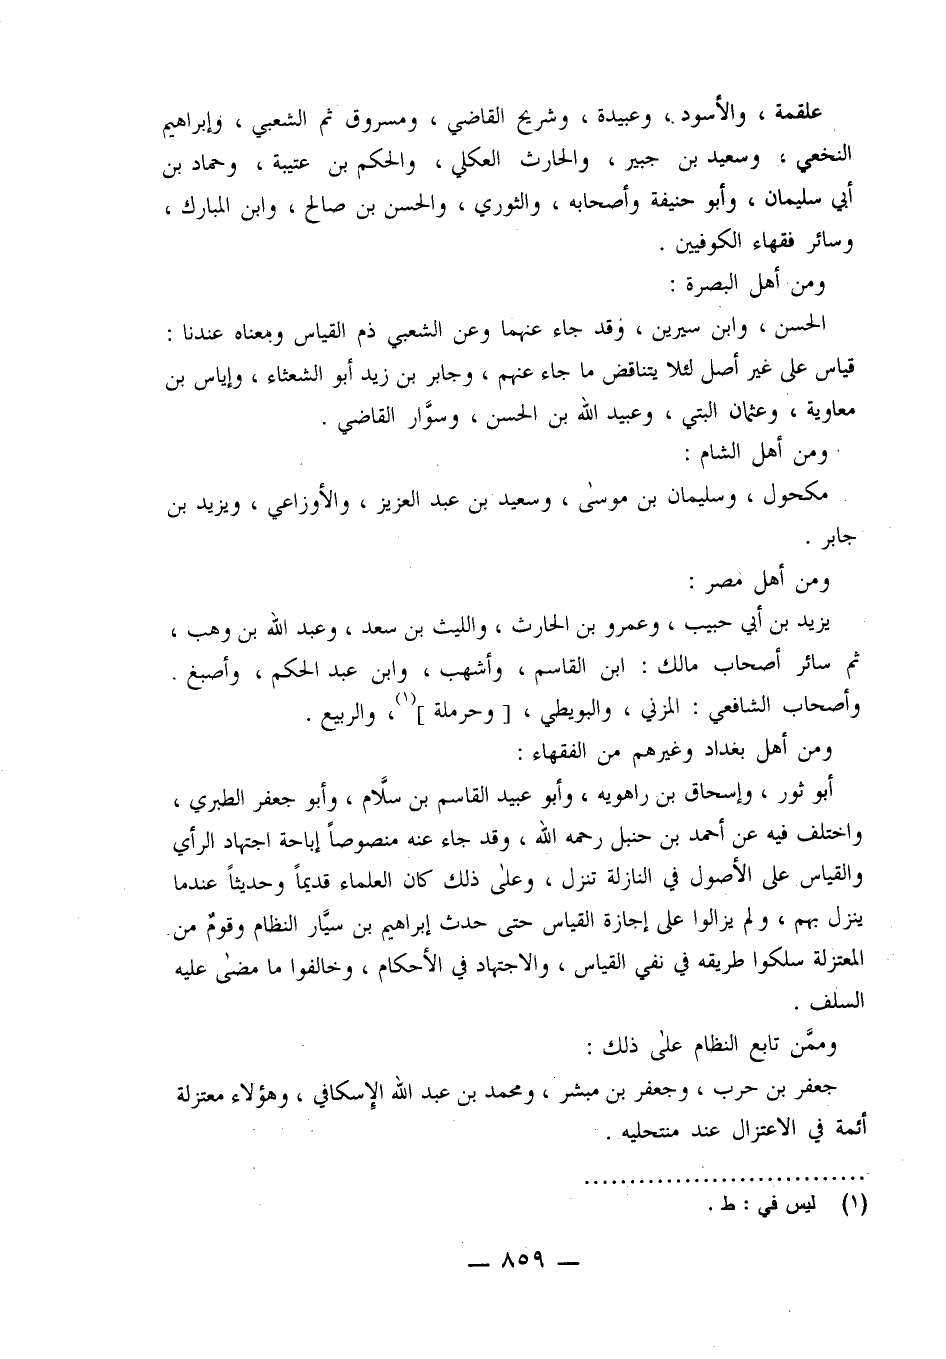 علقمة ، والأسود ، وعبيدة ، وشريح القاضي ، ومسروق ثم الشعبي ، وإبراهيم
النخعي ، وسعيد بن جبير ، والحارث العكلي ، والحكم بن عتيبة ، وحماد بن
أبي سليمان ، وأبو حنيفة وأصحابه ، والثوري ، والحسن بن صالح ، وابن المبارك ،
وسائر فقهاء الكوفيين .
ومن أهل البصرة :
الحسن ، وابن سيرين ، وقد جاء عنهما وعن الشعبي ذم القياس ومعناه عندنا :
قياس على غير أصل لئلا يتناقض ما جاء عنهم ، وجابر بن زيد أبو الشعثاء ، وإياس بن
معاوية ، وعثمان البتي ، وعبيد الله بن الحسن ، وسوَّار القاضي .
ومن أهل الشام :
مكحول ، وسليمان بن موسىٰ ، وسعيد بن عبد العزيز ، والأوزاعي ، ويزيد بن
جابر .
ومن أهل مصر :
يزيد بن أبي حبيب ، وعمرو بن الحارث ، والليث بن سعد ، وعبد الله بن وهب ،
ثم سائر أصحاب مالك : ابن القاسم ، وأشهب ، وابن عبد الحكم ، وأصبغ .
وأصحاب الشافعي : المزني ، والبويطي ، [ وحرملة ](١)، والربيع .
ومن أهل بغداد وغيرهم من الفقهاء :
أبو ثور ، وإسحاق بن راهويه ، وأبو عبيد القاسم بن سلَّام ، وأبو جعفر الطبري ،
واختلف فيه عن أحمد بن حنبل رحمه الله ، وقد جاء عنه منصوصاً إباحة اجتهاد الرأي
والقياس على الأصول في النازلة تنزل ، وعلىٰ ذلك كان العلماء قديماً وحديثاً عندما
ينزل بهم ، ولم يزالوا على إجازة القياس حتى حدث إبراهيم بن سيَّار النظام وقومٌ من
المعتزلة سلكوا طريقه في نفي القياس ، والاجتهاد في الأحكام ، وخالفوا ما مضىٰ عليه
السلف .
وممَّن تابع النظام علىٰ ذلك :
جعفر بن حرب ، وجعفر بن مبشر ، ومحمد بن عبد الله الإسكافي ، وهؤلاء معتزلة
أئمة في الاعتزال عند منتحليه .
..............................
(١) ليس في : ط .
— ٨٥٩ —